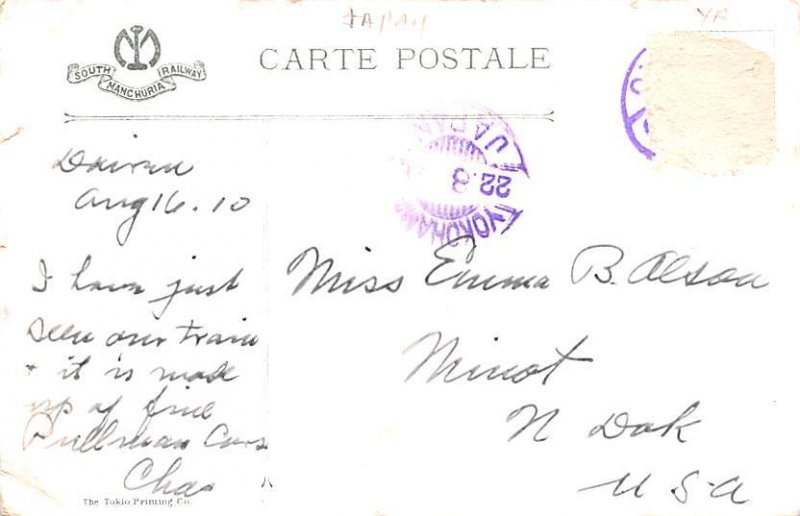 JAPAN
YA
SOUTH MANCHURIA RAILWAY
CARTE POSTALE
YOKOHAMA
22.8
JAPAN
Aug 16. 10
I have just
seen our train
+ it is made
up of fine
Pullman Cars
Chas
Miss Emma B. Olson
Minot
N Dak
U S A
The Tokio Printing Co.